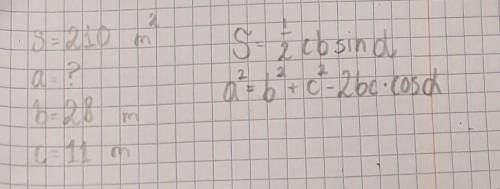 S=210 m²
a=?
b=28 m
c=11 m
S=½cb sin α
a²=b²+c²-2bc·cosα